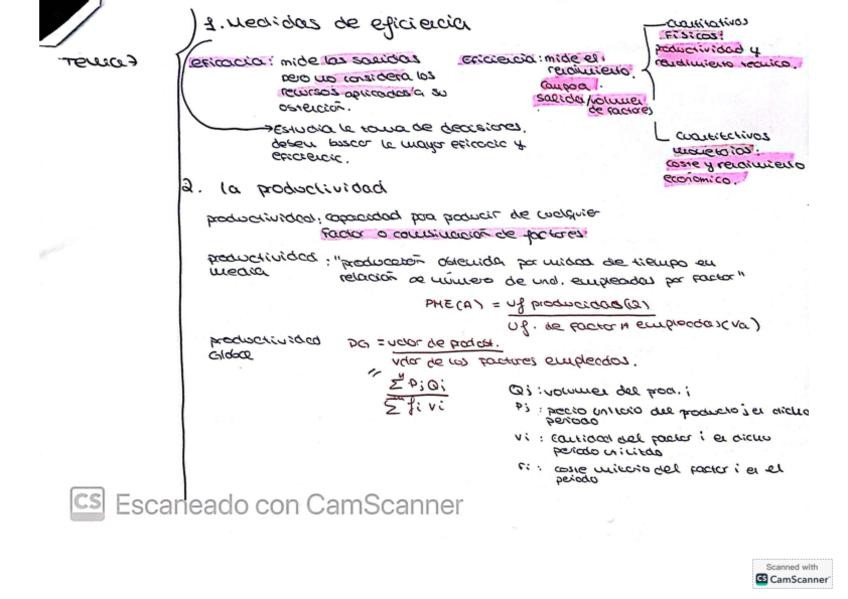 Tema 7
1. Medidas de eficiencia
eficacia: mide las salidas
pero no considera los
recursos aplicados a su
obtención.
Estudia la toma de decisiones.
deben buscar la mayor eficacia y
eficiencia.
eficiencia: mide el
rendimiento.
compara
salida/volumen
de factores
cuantitativos
físicos:
productividad y
rendimiento técnico.
cuantitativos
monetarios:
coste y rendimiento
económico.
2. la productividad
productividad: capacidad para producir de cualquier
factor o combinación de factores.
productividad
media
: "producción obtenida por unidad de tiempo en
relación al número de und. empleadas por factor"
PME(A) = uf producidas(Q)
Uf. de factor A empleadas(Va)
productividad
Global
PG = valor de product.
valor de los factores empleados.
= Σ Pj Qj
Σ fi vi
Qj: volumen del prod. j
Pj: precio unitario del producto j en dicho
periodo
Vi: cantidad del factor i en dicho
periodo
fi: coste unitario del factor i en el
periodo
CS Escaneado con CamScanner
Scanned with
CS CamScanner